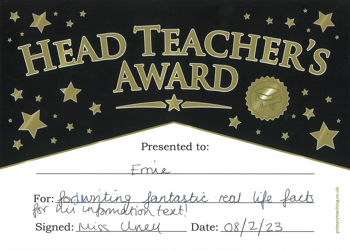 HEAD TEACHER'S
AWARD
Presented to:
Ernie
For: writing fantastic real life facts
for his information text!
Signed: Miss Date: 08/2/23